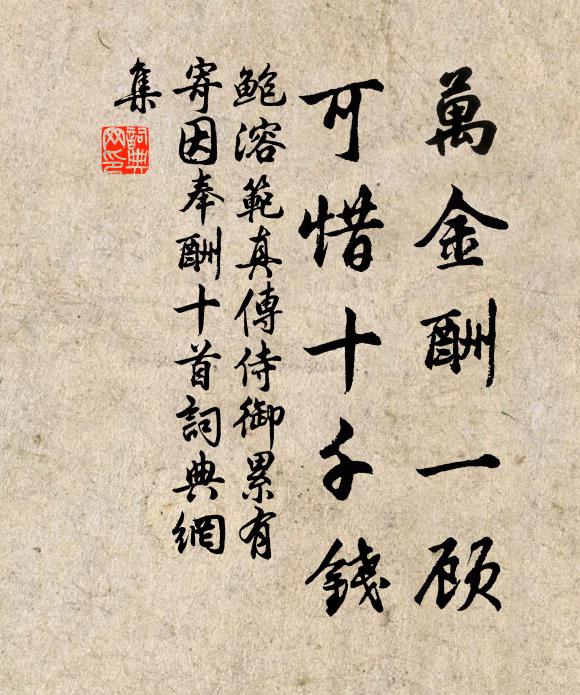 萬金酬一顾
可惜十千錢
鲍溶範真傳侍御累有
寄因奉酬十首詞典網
集
詞典网印